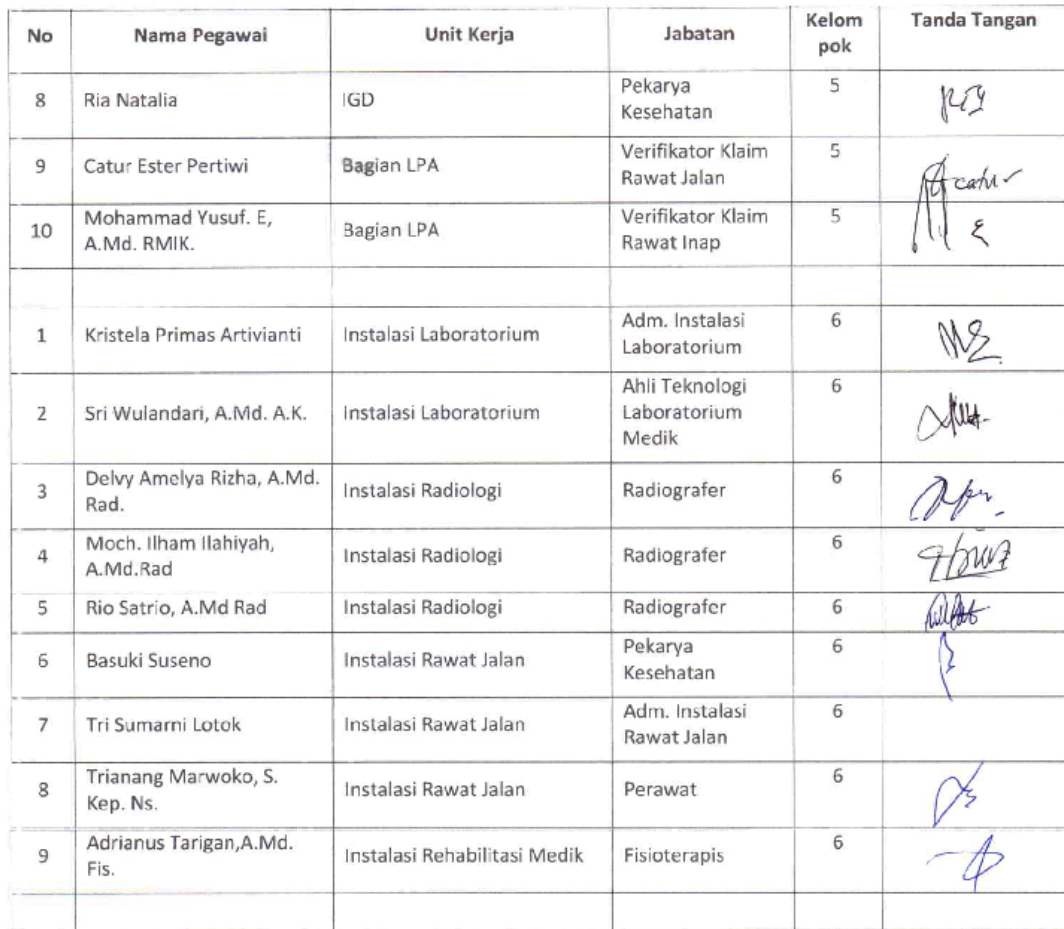 No Nama Pegawai Unit Kerja Jabatan Kelom Tanda Tangan
pok
8 Ria Natalia IGD Pekarya 5
Kesehatan
9 Catur Ester Pertiwi Bagian LPA Verifikator Klaim 5
Rawat Jalan
catur
10 Mohammad Yusuf. E, Bagian LPA Verifikator Klaim 5
A.Md. RMIK. Rawat Inap
1 Kristela Primas Artivianti Instalasi Laboratorium Adm. Instalasi 6
Laboratorium
2 Sri Wulandari, A.Md. A.K. Instalasi Laboratorium Ahli Teknologi 6
Laboratorium
Medik
3 Delvy Amelya Rizha, A.Md. Instalasi Radiologi Radiografer 6
Rad.
4 Moch. Ilham Ilahiyah, Instalasi Radiologi Radiografer 6
A.Md.Rad
5 Rio Satrio, A.Md Rad Instalasi Radiologi Radiografer 6
6 Basuki Suseno Instalasi Rawat Jalan Pekarya 6
Kesehatan
7 Tri Sumarni Lotok Instalasi Rawat Jalan Adm. Instalasi 6
Rawat Jalan
8 Trianang Marwoko, S. Instalasi Rawat Jalan Perawat 6
Kep. Ns.
9 Adrianus Tarigan,A.Md. Instalasi Rehabilitasi Medik Fisioterapis 6
Fis.